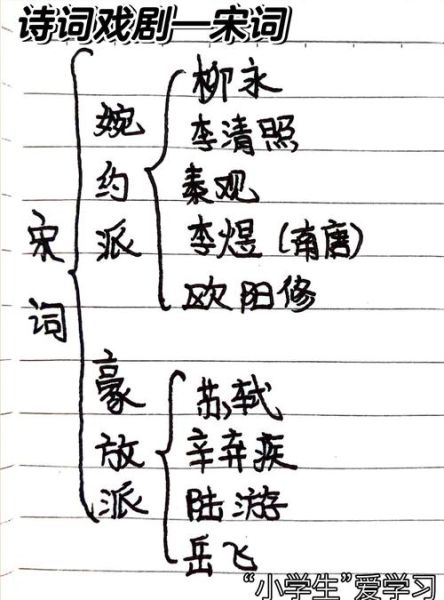 诗词戏剧—宋词
宋词
婉约派
柳永
李清照
秦观
李煜(南唐)
欧阳修
豪放派
苏轼
辛弃疾
陆游
岳飞
“小学生”爱学习